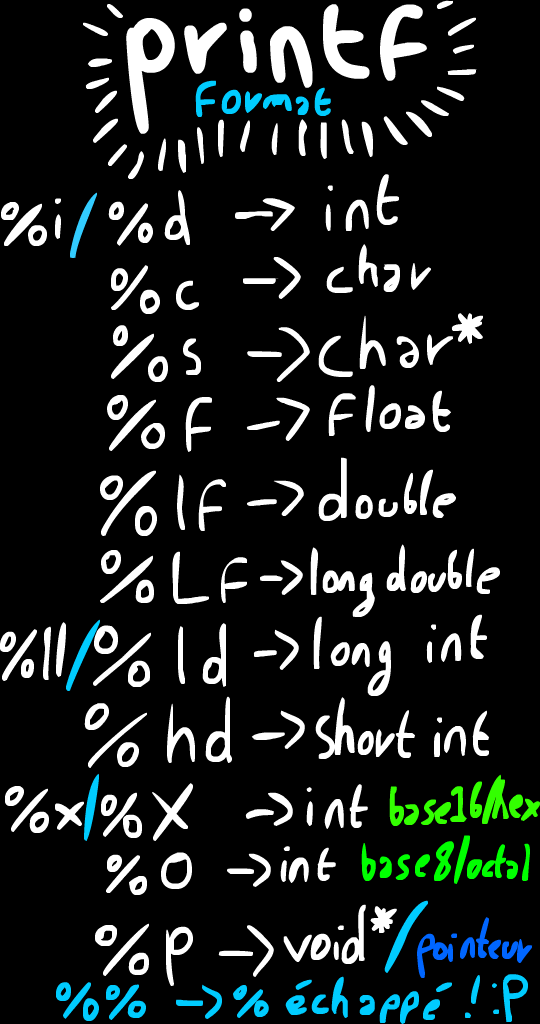 printf
Format
%i/%d -> int
%c -> char
%s -> char*
%F -> Float
%lF -> double
%LF -> long double
%ll/%ld -> long int
%hd -> short int
%x/%X -> int base16/hex
%O -> int base8/octal
%p -> void*/pointeur
%% -> % échappé ! :P